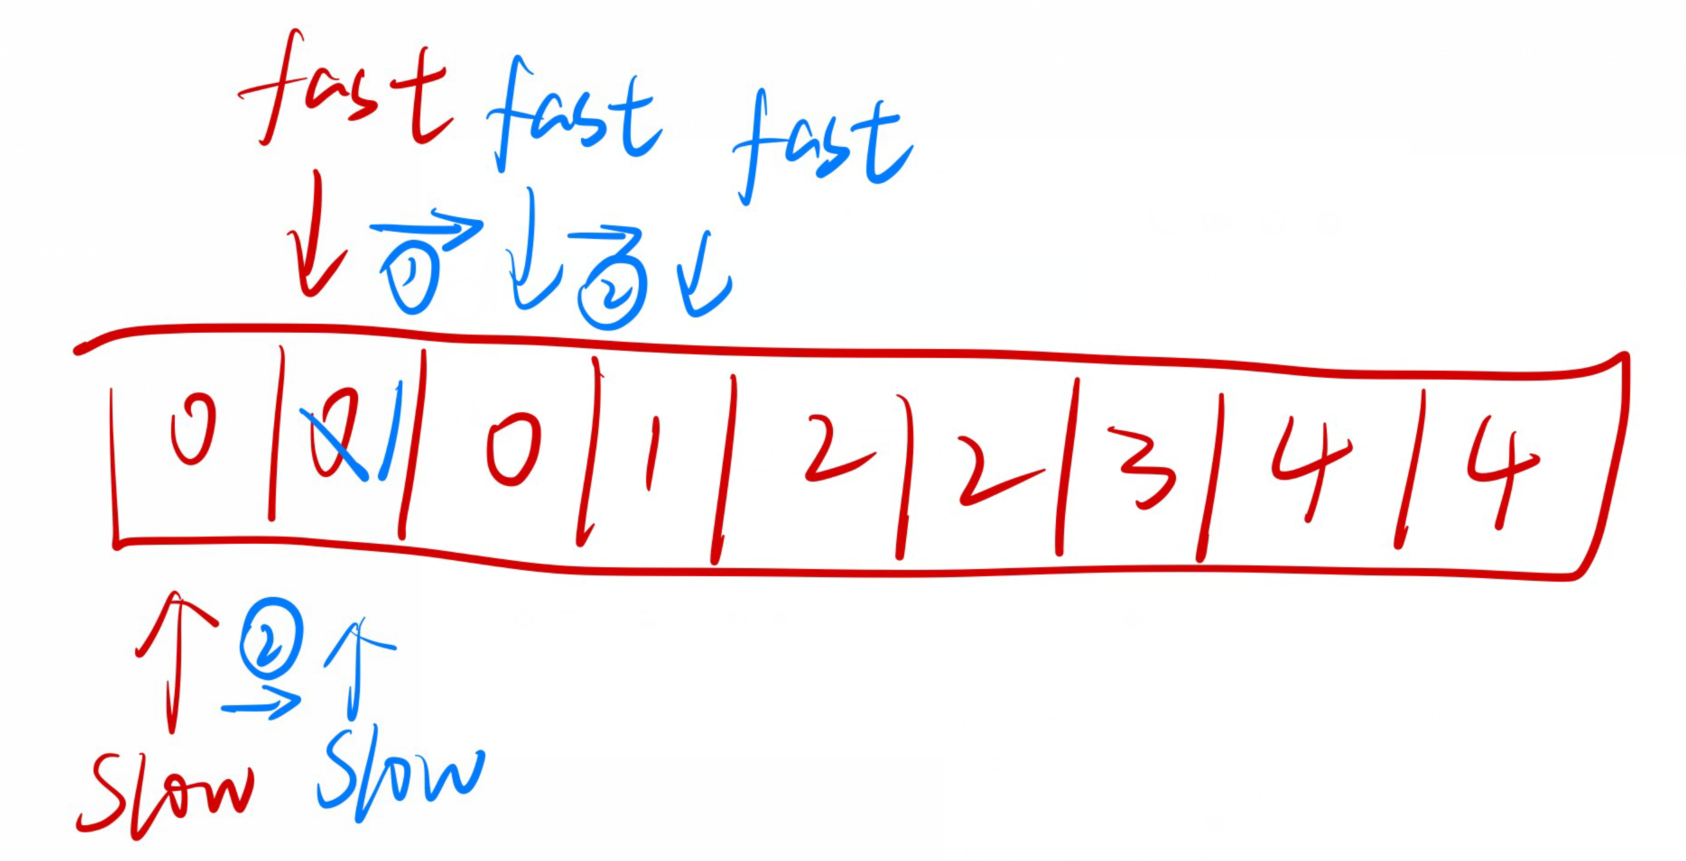 fast fast fast
① ②
0 0 1 0 1 2 2 3 4 4
②
slow slow